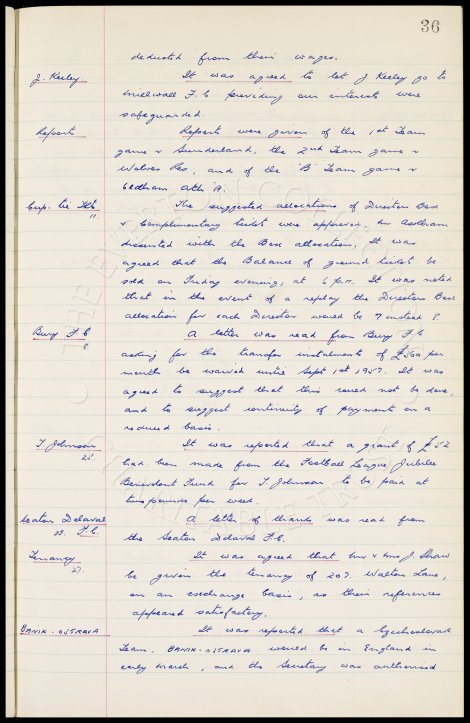 36
deducted from their wages.
J. Keeley It was agreed to let J. Keeley go to
Millwall F.C providing our interests were
safeguarded.
Reports Reports were given of the 1st Team
game v Sunderland, the 2nd Team game v
Wolves Res, and of the 'B' Team game v
Oldham Ath 'A'.
Cup. tie Tkts The suggested allocations of Directors Box
11. & Complimentary tickets were approved, Mr
dissented with the Box allocation. It was
agreed that the Balance of ground tickets be
sold on Friday evening, at 6 p.m. It was noted
that in the event of a replay the Directors Box
allocation for each Director would be 7 instead 8.
Bury F.C A letter was read from Bury F.C
8 asking for the transfer instalments of £500 per
month be waived until Sept 1st 1957. It was
agreed to suggest that this could not be done,
and to suggest continuity of payment on a
reduced basis.
T. Johnson It was reported that a grant of £52
25 had been made from the Football League Jubilee
Benevolent Fund for T. Johnson to be paid at
two pounds per week.
Seaton Delaval A letter of thanks was read from
28. F.C. the Seaton Delaval F.C.
Tenancy It was agreed that Mr & Mrs J. Shaw
27. be given the tenancy of 207. Walton Lane,
on an exchange basis, as their references
appeared satisfactory.
BANIK-OSTRAVA It was reported that a Czechoslovak
Team, BANIK-OSTRAVA would be in England in
early March, and the Secretary was authorised
THE EVERTON COLLECTION
CHARITABLE TRUST